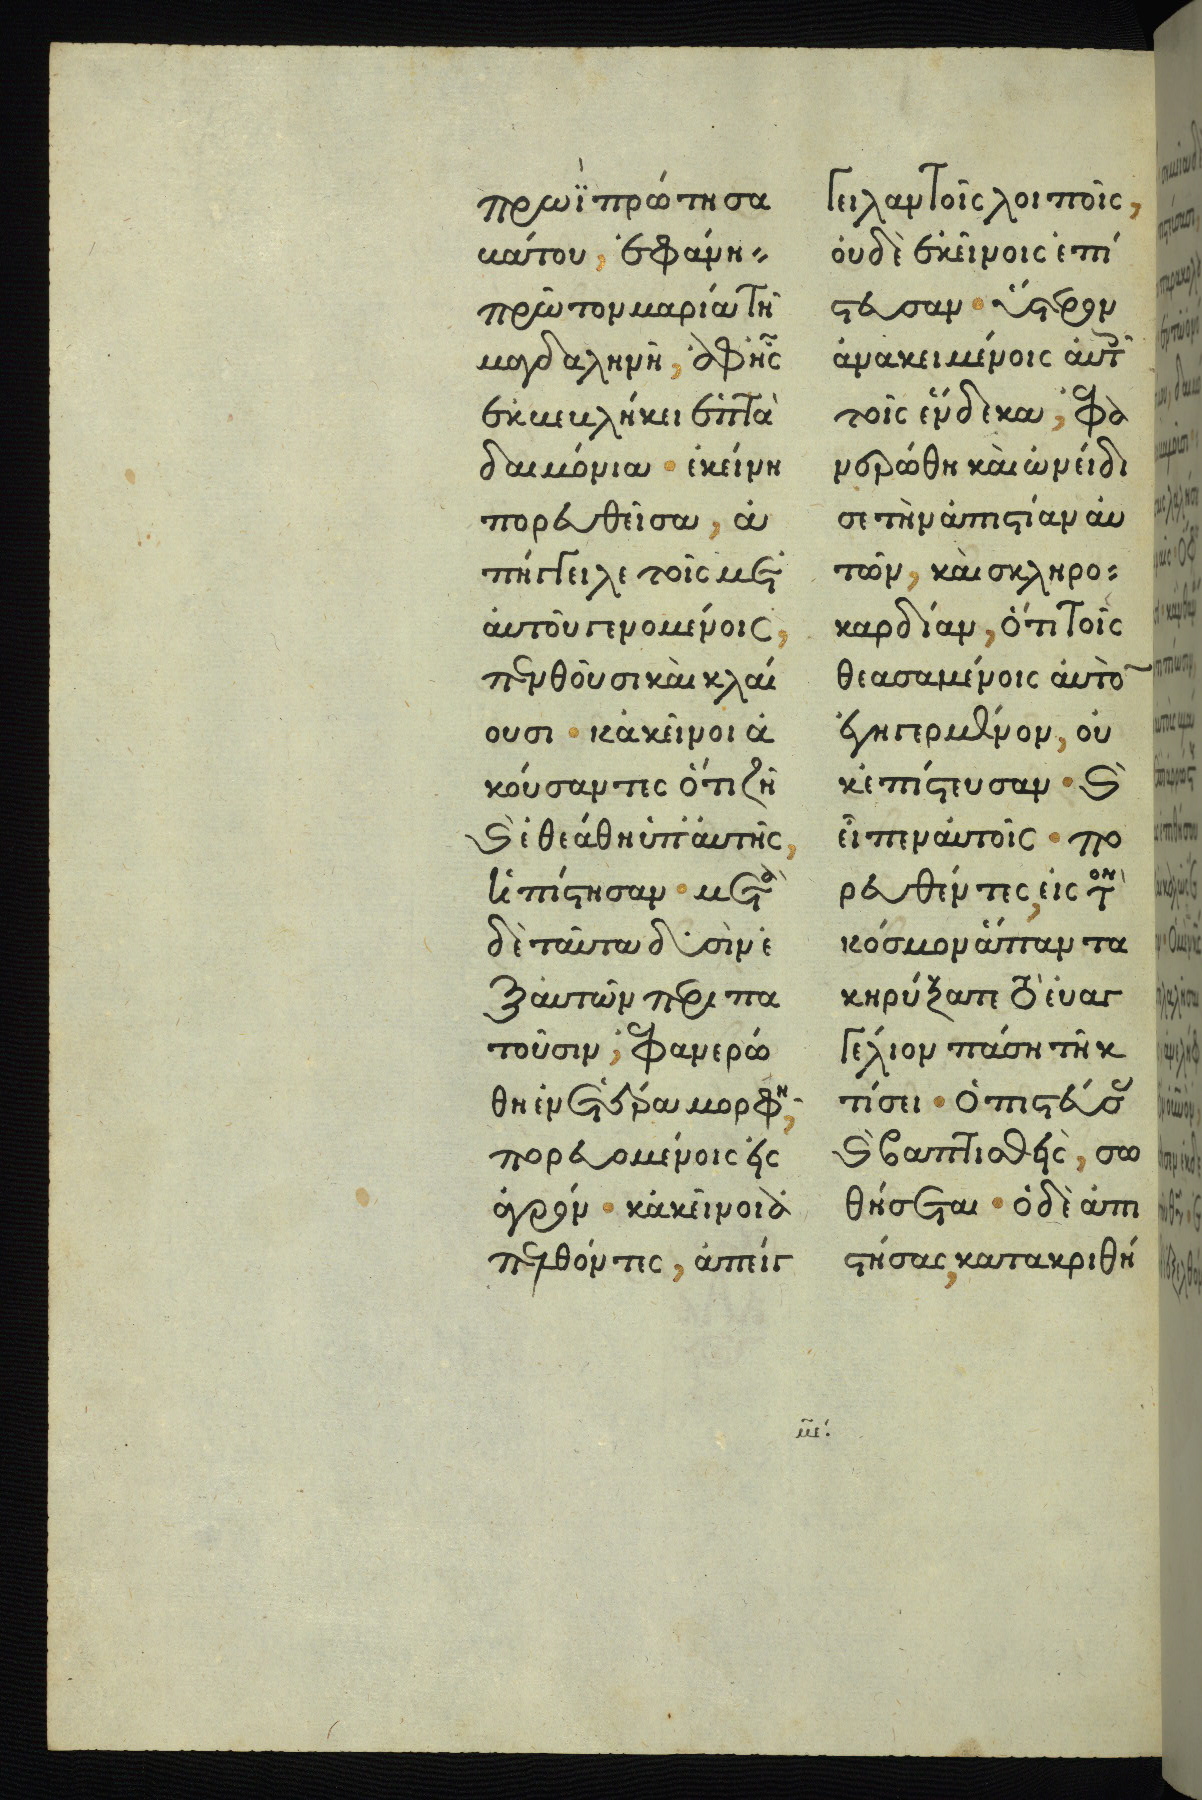 πρωῒ πρώτη σα
βάτου, ἐφάνη
πρῶτον μαρία τῆ
μαγδαληνῆ, ἀφῆς
ἐκβεβλήκει ἑπτὰ
δαιμόνια · ἐκείνη
πορευθεῖσα, ἀ
πήγγειλε τοῖς μετ
ἀυτοῦ γενομένοις,
πενθοῦσι καὶ κλαί
ουσι · κἀκεῖνοι ἀ
κούσαντες ὅτι ζῆ
καὶ ἐθεάθη ὑπ' ἀυτῆς,
ἠπίστησαν · μετὰ
δὲ ταῦτα δυσὶν ἐ
ξ ἀυτῶν περιπα
τοῦσιν, ἐφανερώ
θη ἐν ἑτέρα μορφῆ,
πορευομένοις εἰς
ἀγρόν · κἀκεῖνοι ἀ
πελθόντες, ἀπήγ
γειλαν τοῖς λοιποῖς,
ὀυδὲ ἐκείνοις ἐπί
στευσαν · ὕστερον
ἀνακειμένοις ἀυτοῖς
τοῖς ἕνδεκα, ἐφα
νερώθη καὶ ὠνείδι
σε τὴν ἀπιστίαν ἀυ
τῶν, καὶ σκληρο
καρδίαν, ὅτι τοῖς
θεασαμένοις ἀυτὸν
ἐγηγερμένον, ὀυ
κ ἐπίστευσαν · καὶ
εἶπεν ἀυτοῖς · πο
ρευθέντες, εἰς τὸν
κόσμον ἅπαντα
κηρύξατε τὸ ἐυαγ
γέλιον πάση τῆ κ
τίσει · ὁ πιστεύσας
καὶ βαπτισθεὶς, σω
θήσεται · ὁ δὲ ἀπι
στήσας, κατακριθή